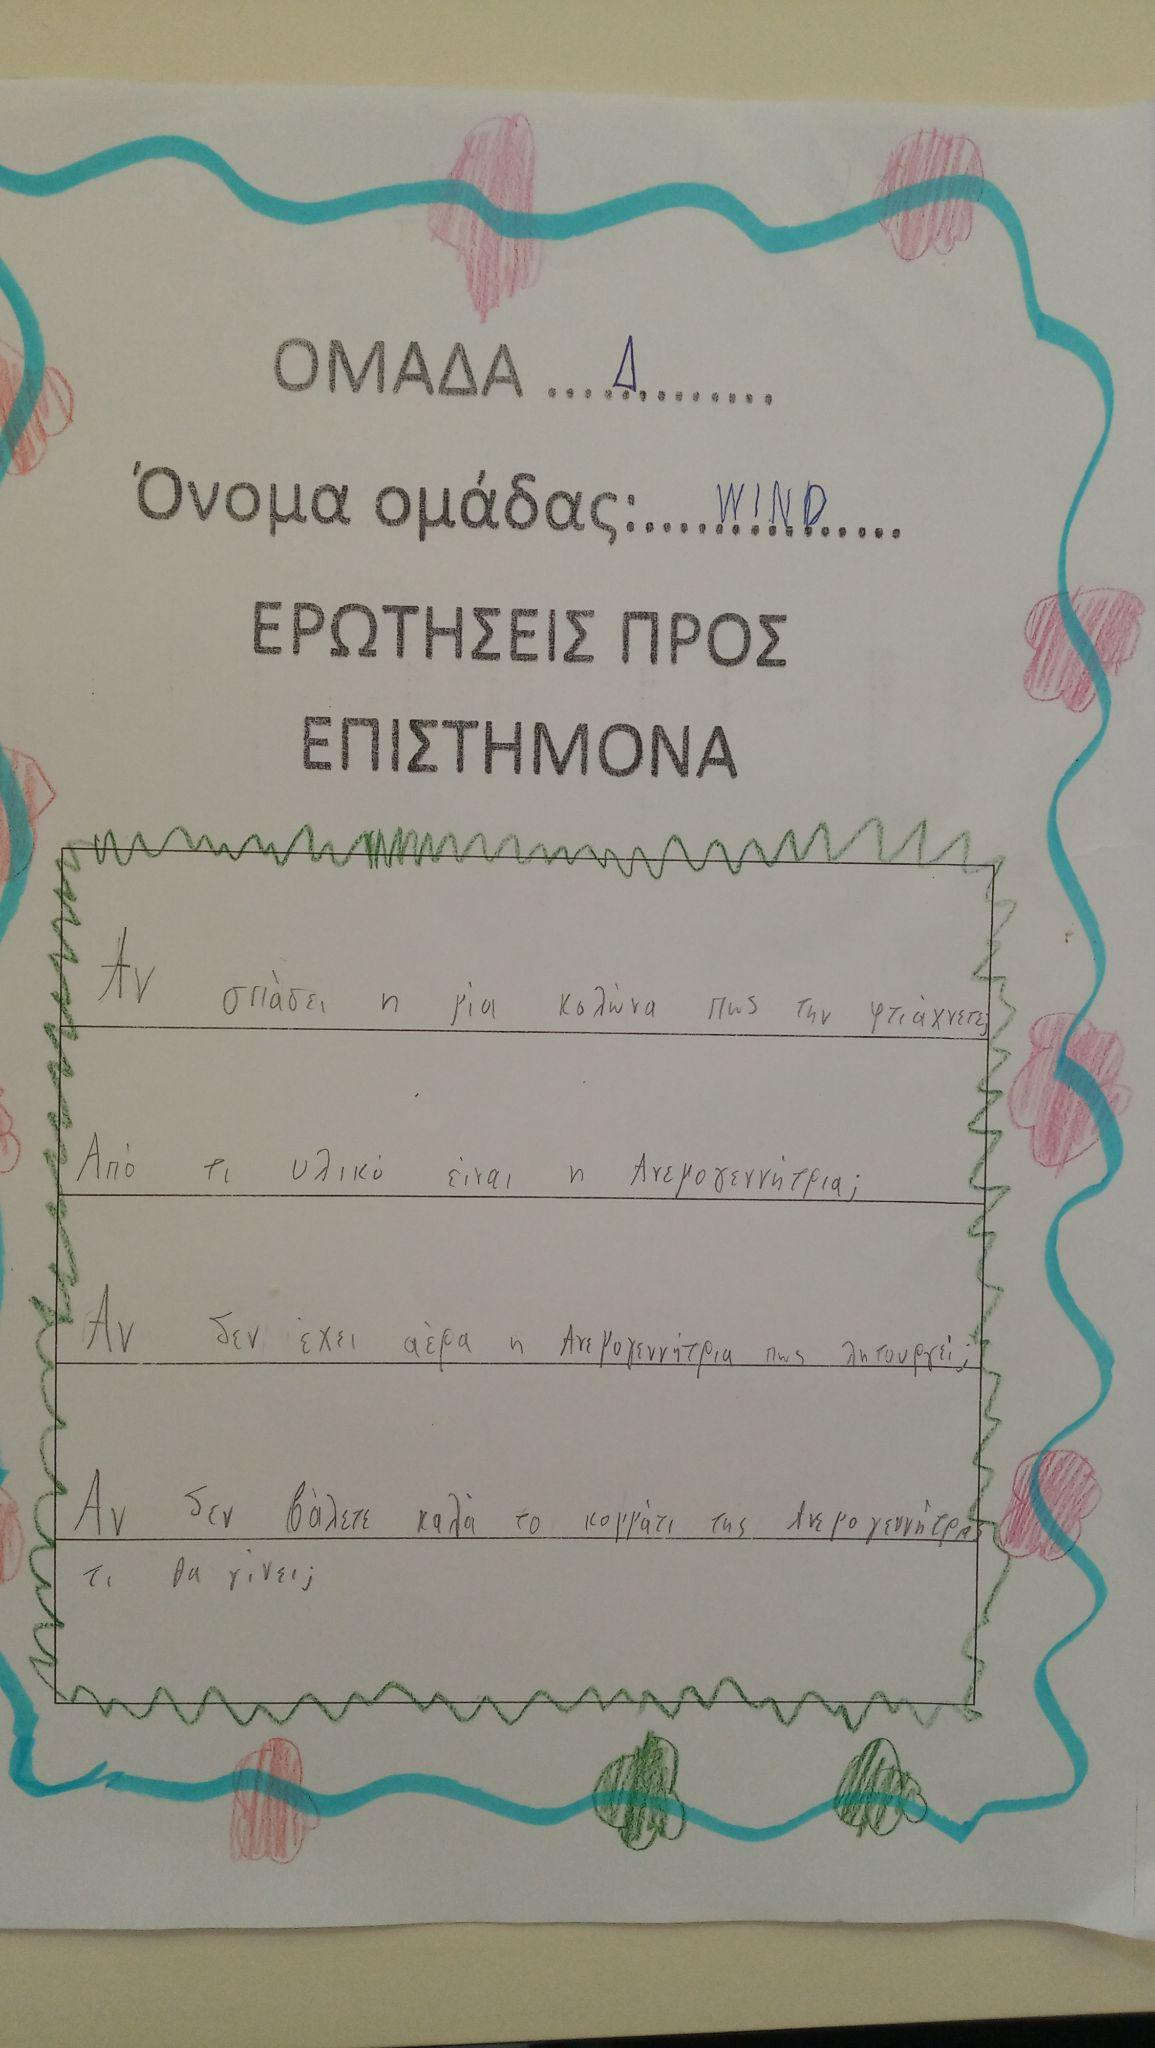 ΟΜΑΔΑ ....Δ..........
Όνομα ομάδας:.....WIND.....
ΕΡΩΤΗΣΕΙΣ ΠΡΟΣ
ΕΠΙΣΤΗΜΟΝΑ
Αν σπάσει η μία κολώνα πως την φτιάχνετε;
Από τι υλικό είναι η Ανεμογεννήτρια;
Αν δεν έχει αέρα η Ανεμογεννήτρια πως λητουργεί;
Αν δεν βάλετε καλά το κομμάτι της Ανεμογεννήτρας
τι θα γίνει;